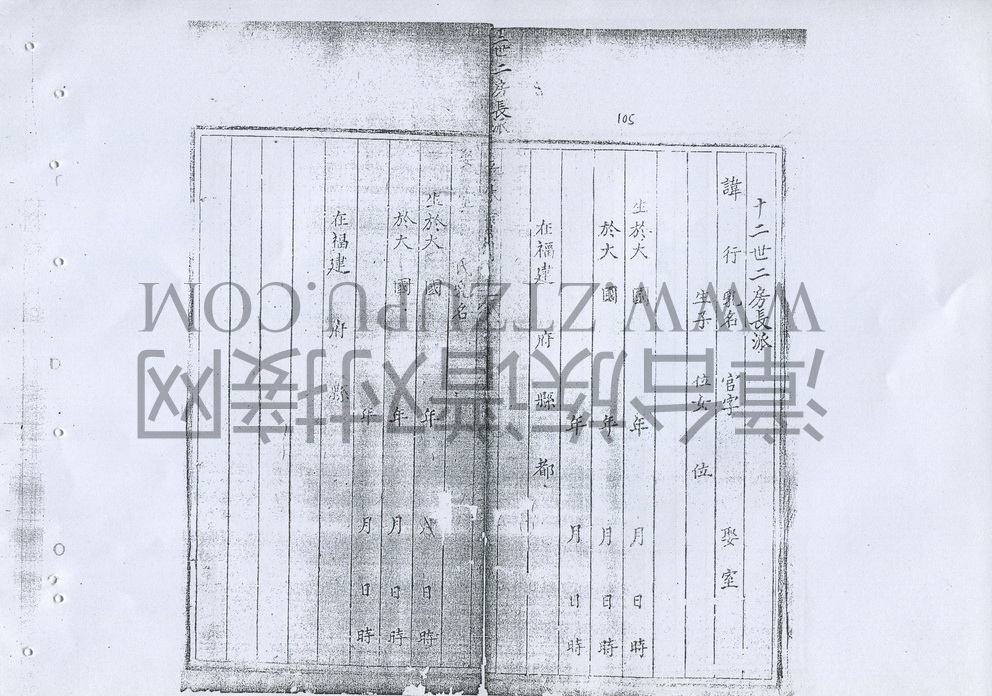 105
十二世二房長派
諱 行 乳名 官字 娶室
生子 位女 位
生於大 國 年 月 日 時
於大 國 年 月 日 時
年 月 日 時
在福建 府 縣 都
世二房長派
氏 乳名
生於大 國 年 月 日 時
於大 國 年 月 日 時
年 月 日 時
在福建 府 縣
WWW.ZTZUPU.COM
漳台族谱对接网